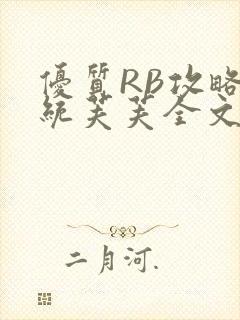 優質RB攻略
統芙芙全文
二月河.